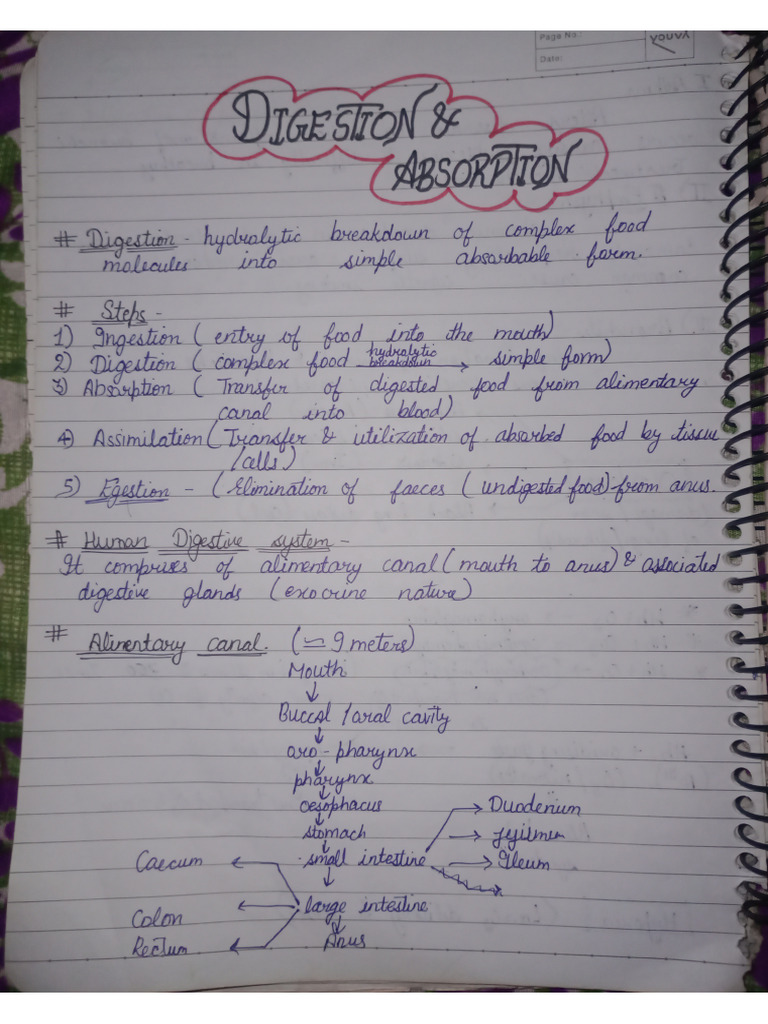 Page No.:
Date:
YOUVA
DIGESTION &
ABSORPTION
# Digestion - hydrolytic breakdown of complex food
molecules into simple absorbable form.
# Steps -
1) Ingestion ( entry of food into the mouth)
2) Digestion ( complex food hydrolytic breakdown → simple form)
3) Absorption ( Transfer of digested food from alimentary
canal into blood)
4) Assimilation ( Transfer & utilization of absorbed food by tissue
/cells)
5) Egestion - ( Elimination of faeces ( undigested food) from anus.
# Human Digestive system -
It comprises of alimentary canal ( mouth to anus) & associated
digestive glands ( exocrine nature)
# Alimentary canal. (≃ 9 meters)
Mouth
↓
Buccal / oral cavity
↓
oro - pharynx
↓
pharynx
↓
oesophacus → Duodenium
↓
stomach → jejilmum
↓
Caecum ← small intestine → Ileum
↓
Colon ← large intestine
↓
Rectum ← Anus